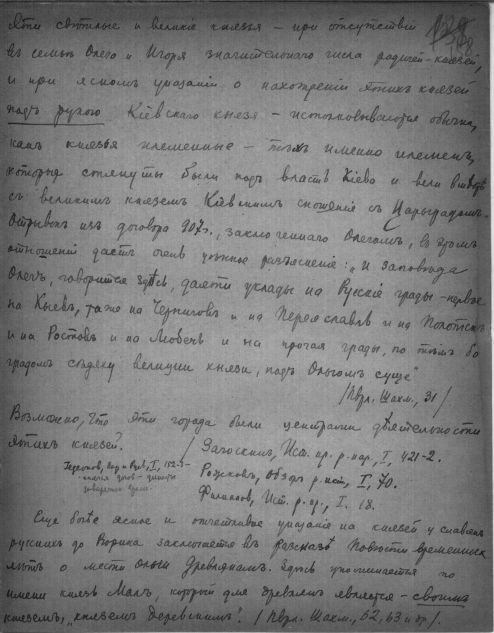 Эти свѣтлые и великіе князья – при отсутствіи
въ семьѣ Олега и Игоря значительнаго числа родичей-князей,
и при ясномъ указаніи о нахожденіи этихъ князей
подъ рукою Кіевскаго князя – истолковываются обычно,
какъ князья племенные – тѣхъ именно племенъ,
которыя стянуты были подъ власть Кіева и вели вмѣстѣ
съ великимъ княземъ Кіевскимъ сношенія съ Царьградомъ.
Отрывокъ изъ договора 907 г., заключеннаго Олегомъ, въ этомъ
отношеніи даетъ очень цѣнное разъясненіе: „И заповѣда
Олегъ, говорится здѣсь, даяти уклады на Русскіе грады – первое
на Кыевъ, таже на Черниговъ и на Переяславль и на Полотескъ
и на Ростовъ и на Любечь и на прочая грады, по тѣмъ бо
градомъ сѣдяху велиции князи, подъ Ольгомъ суще"
/Пврл. Шахм., 31/
Возможно, что эти города были центрами дѣятельности
этихъ князей.
/Загоскинъ, Ист. пр. р. нар., I, 421-2.
Рожковъ, Обзоръ р. ист., I, 70.
Филиповъ, Ист. р. пр., I. 18.
Еще болѣе ясное и отчетливое указаніе на князей у славянъ
русскихъ до Рюрика заключается въ разсказѣ Повѣсти временныхъ
лѣтъ о мести Ольги Древлянамъ. Здѣсь упоминается по
имени князь Малъ, который для древлянъ является – своимъ
княземъ, „княземъ деревскимъ". /Пврл. Шахм., 62, 63 и др./.